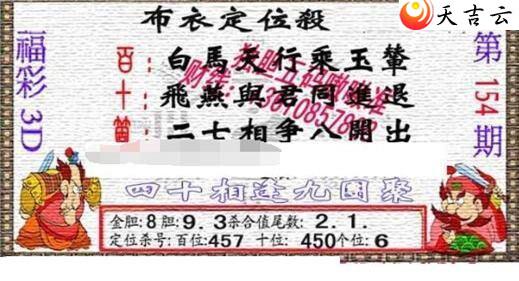 天吉云
布衣定位殺
福彩3D
第154期
百:白馬天行乘玉輦
十:飛燕與君同進退
箇:二七相争八開出
四十相逢九國聚
金胆:8胆:9.3杀合值尾数:2.1.
定位杀号:百位:457 十位:450个位:6